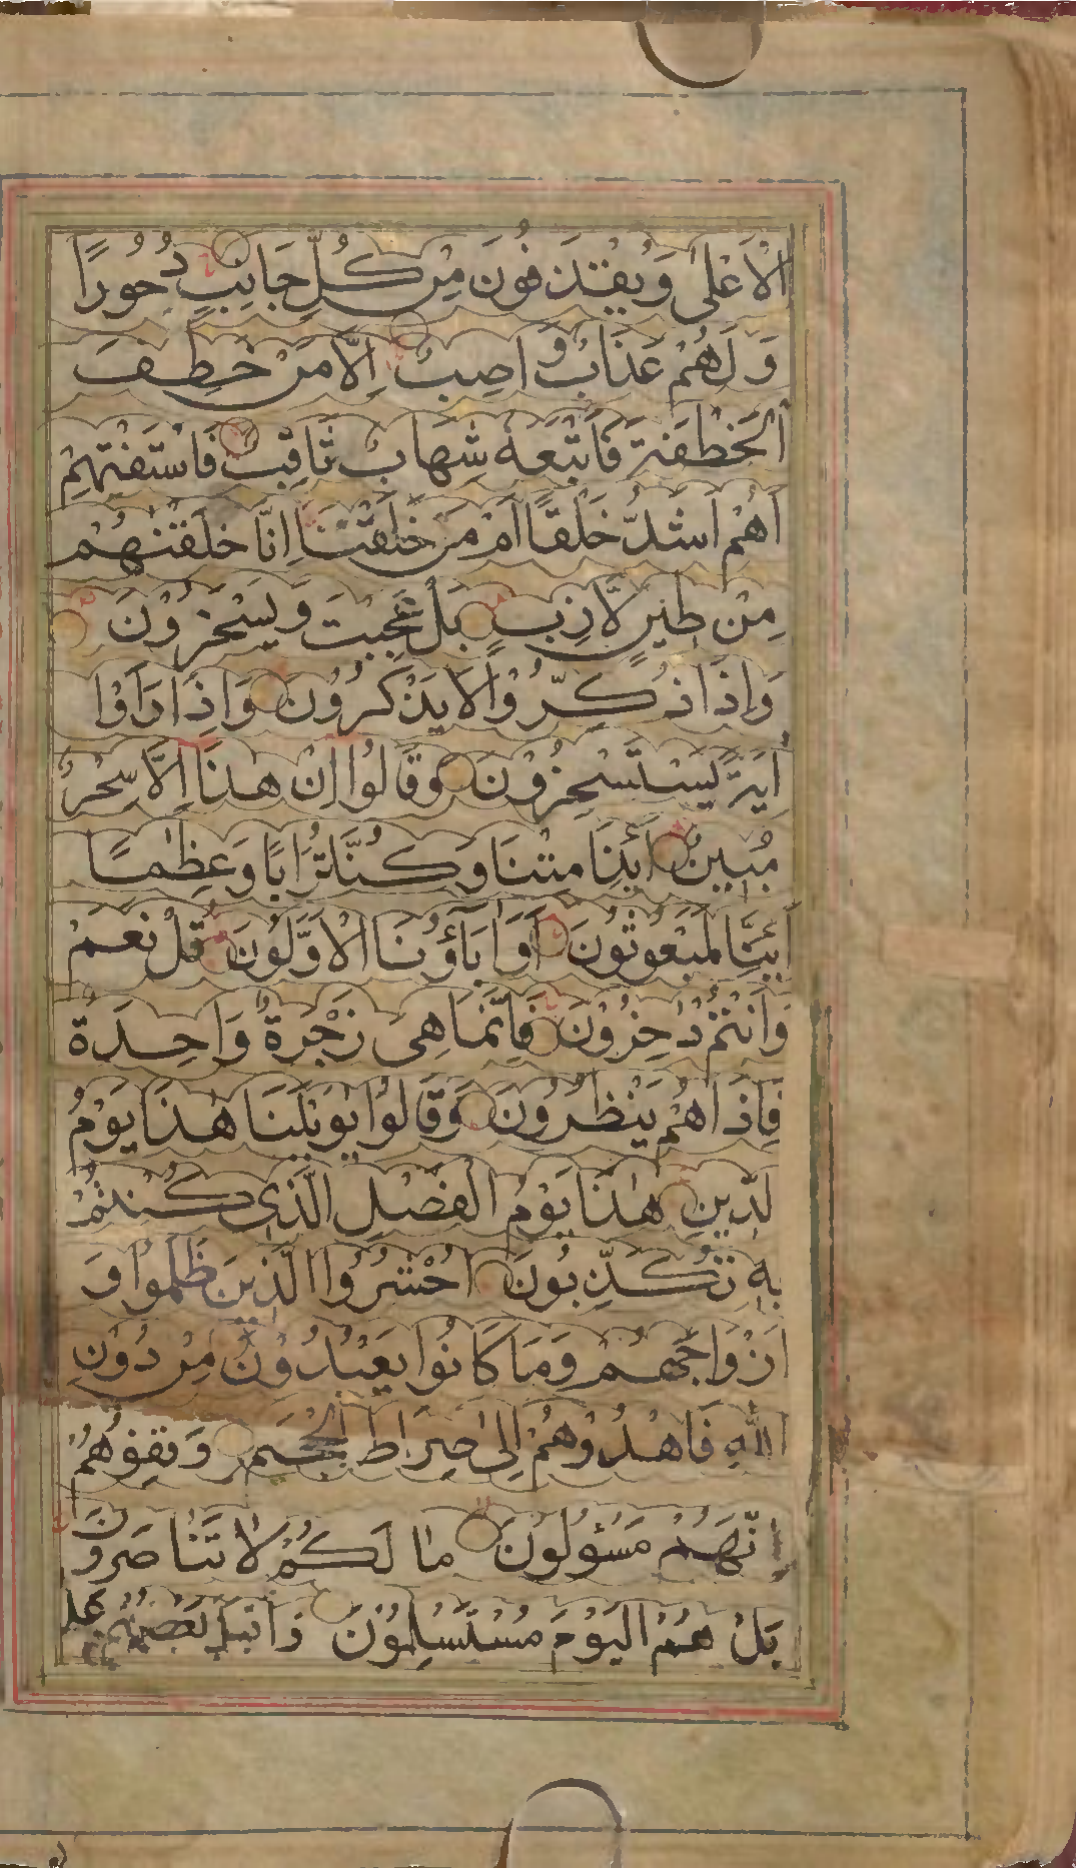 الْاَعْلٰى وَيُقْذَفُونَ مِنْ كُلِّ جَانِبٍ دُحُورًا
وَلَهُمْ عَذَابٌ وَاصِبٌ اِلَّا مَنْ خَطِفَ
الْخَطْفَةَ فَاَتْبَعَهُ شِهَابٌ ثَاقِبٌ فَاسْتَفْتِهِمْ
اَهُمْ اَشَدُّ خَلْقًا اَمْ مَنْ خَلَقْنَا اِنَّا خَلَقْنٰهُمْ
مِنْ طِينٍ لَّازِبٍ بَلْ عَجِبْتَ وَيَسْخَرُوْنَ
وَاِذَا ذُكِّرُوْا لَا يَذْكُرُوْنَ وَاِذَا رَاَوْا
اٰيَةً يَّسْتَسْخِرُوْنَ وَقَالُوْا اِنْ هٰذَا اِلَّا سِحْرٌ
مُبِينٌ اَئِذَا مِتْنَا وَكُنَّا تُرَابًا وَعِظٰمًا
اَئِنَّا لَمَبْعُوثُونَ اَوَ اٰبَآؤُنَا الْاَوَّلُونَ قُلْ نَعَمْ
وَاَنْتُمْ دَاخِرُوْنَ فَاِنَّمَا هِىَ زَجْرَةٌ وَاحِدَةٌ
فَاِذَا هُمْ يَنْظُرُوْنَ وَقَالُوْا يٰوَيْلَنَا هٰذَا يَوْمُ
الدِّينِ هٰذَا يَوْمُ الْفَصْلِ الَّذِى كُنْتُمْ
بِهِ تُكَذِّبُونَ اُحْشُرُوا الَّذِينَ ظَلَمُوْا وَ
اَزْوَاجَهُمْ وَمَا كَانُوا يَعْبُدُوْنَ مِنْ دُوْنِ
اللّٰهِ فَاهْدُوْهُمْ اِلٰى صِرَاطِ الْجَحِيمِ وَقِفُوْهُمْ
اِنَّهُمْ مَسْؤُلُوْنَ مَا لَكُمْ لَا تَنَاصَرُوْنَ
بَلْ هُمُ الْيَوْمَ مُسْتَسْلِمُوْنَ وَاَقْبَلَ بَعْضُهُمْ عَلٰى